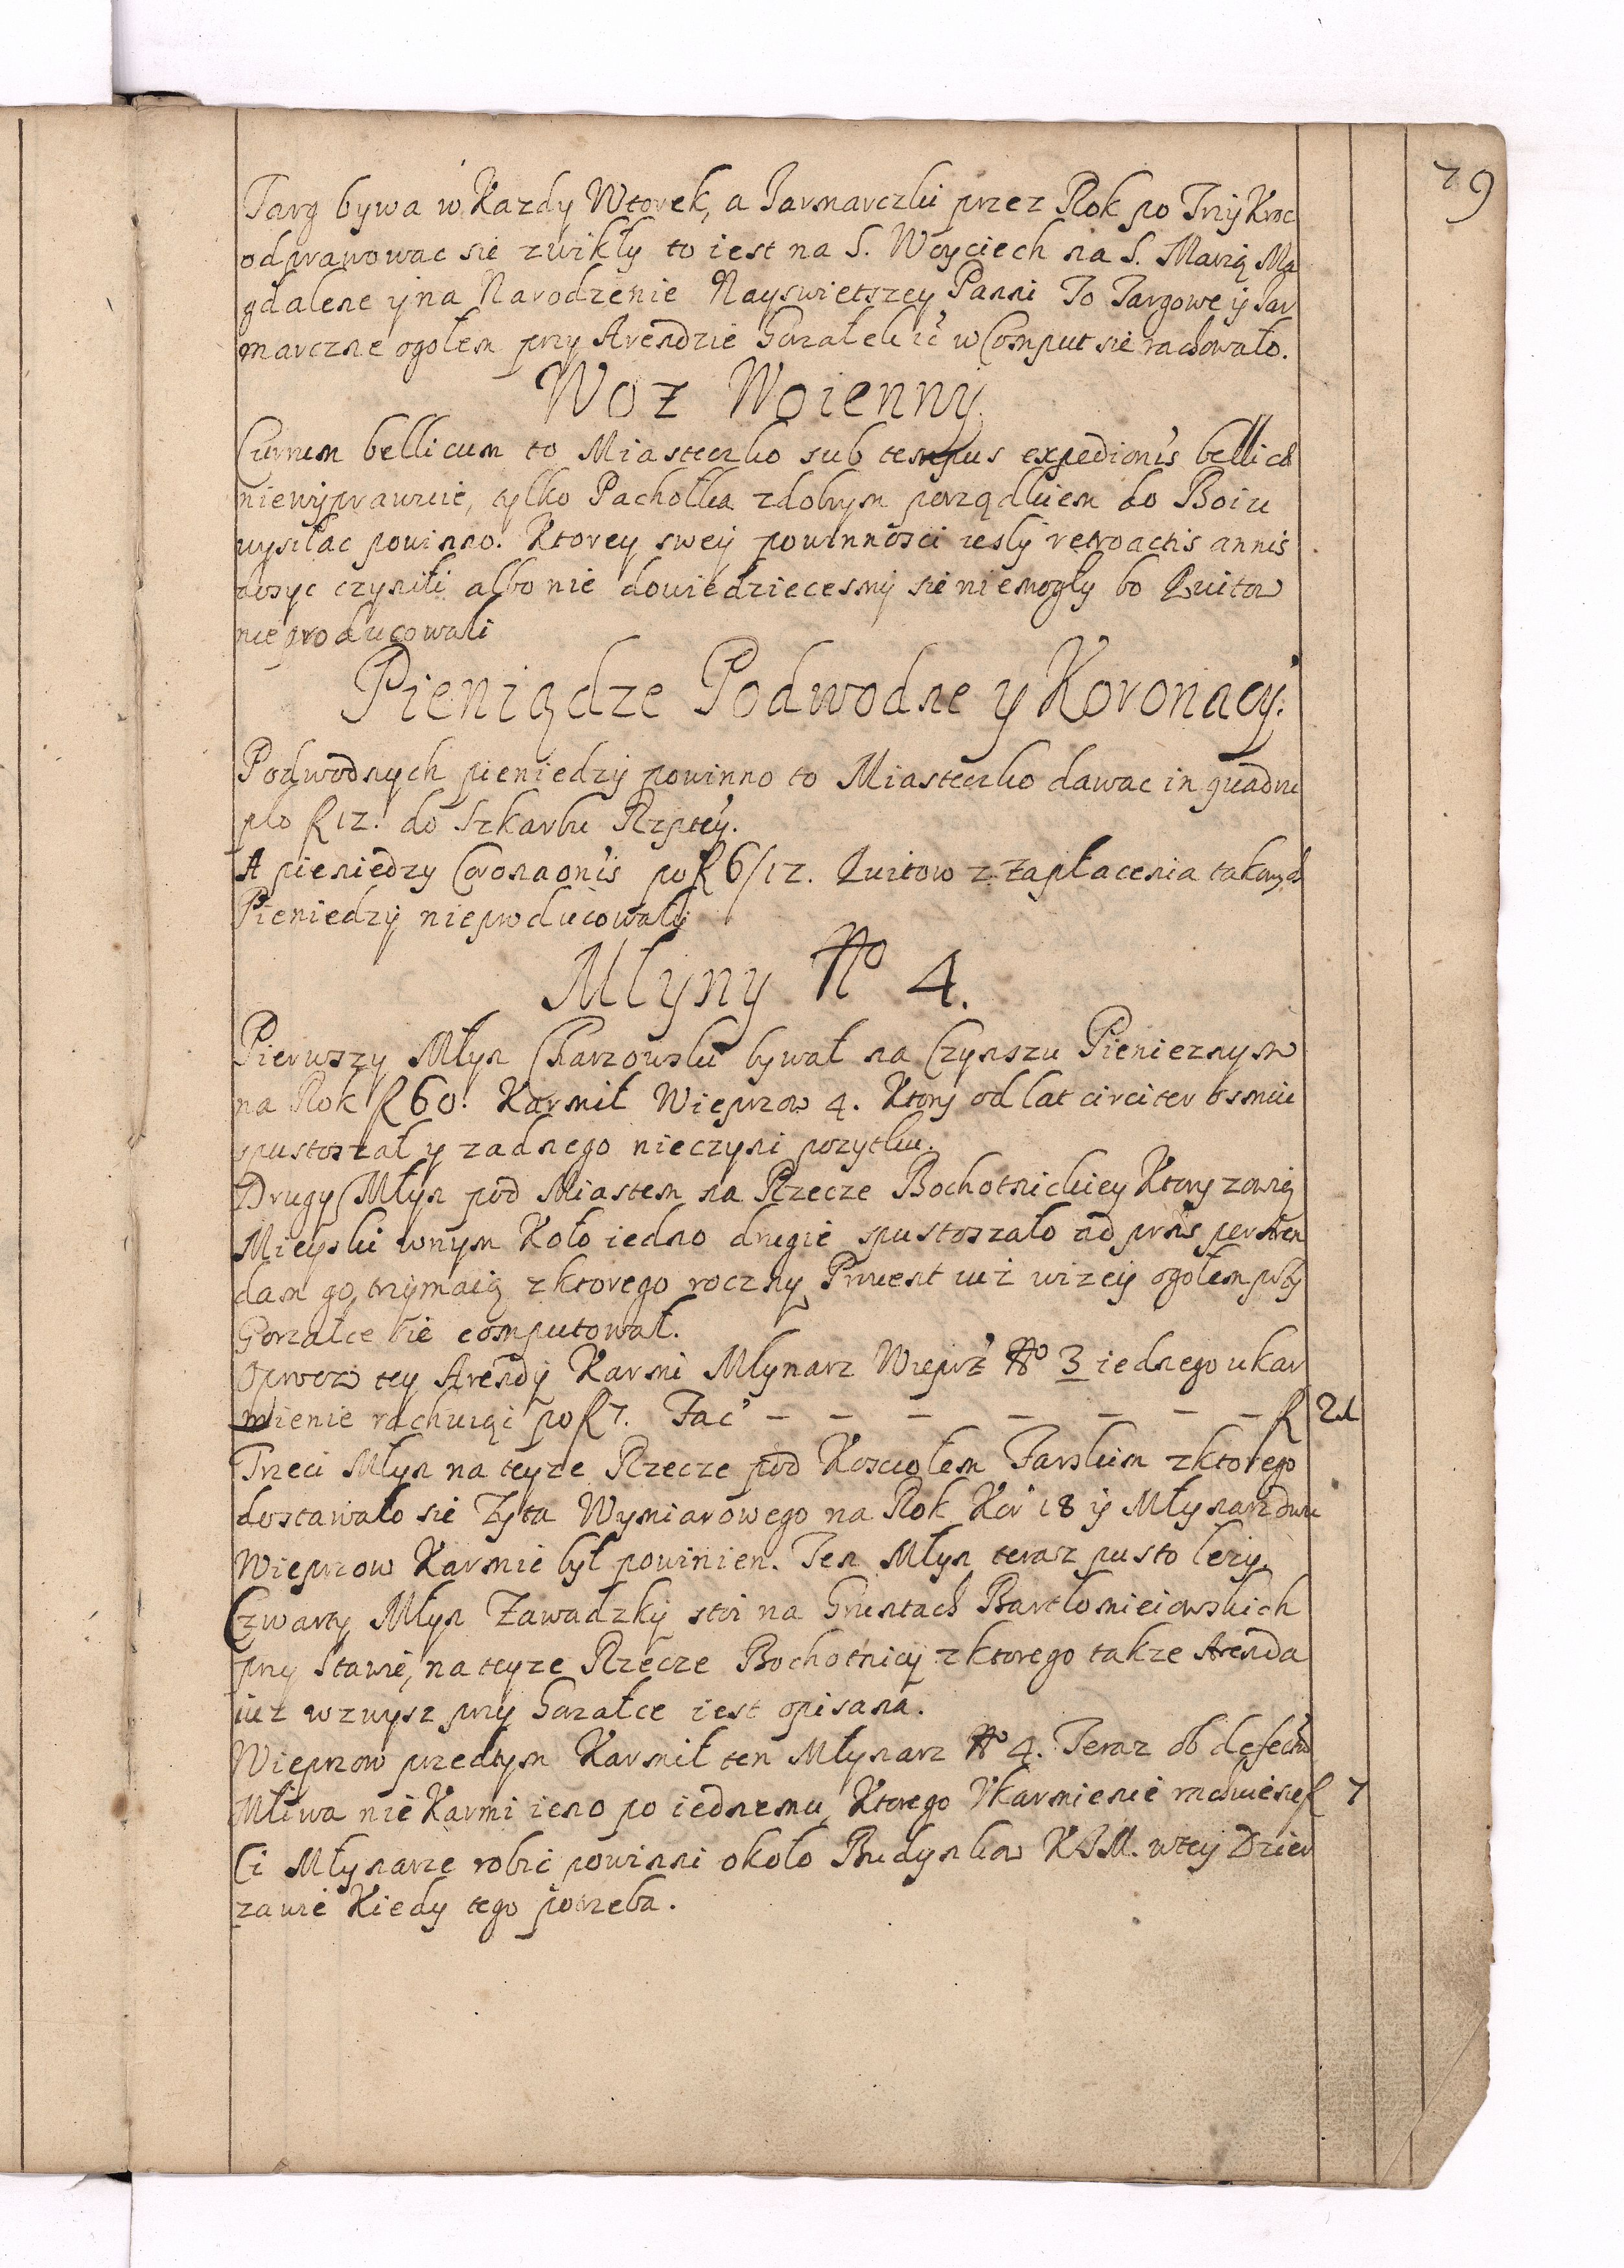 79
Targ bywa w Kazdy Wtorek, a Jarmarczki przez Rok po Trzy Kroc
odprawowac sie zwikły to iest na S. Woyciech na S. Marią Ma
gdalene y na Narodzenie Nayswietszey Panni To Targowe y Jar
marczne ogołem przy Arendzie Gorzałek iż w Comput sie rachowało.
Woz Woienny
Currum bellicum to Miasteczko sub tempus expedionis bellicæ
niewyprawuie, tylko Pachołka z dobrym porządkiem do Boiu
wysiłac powinno. Ktorey swey powinnosci iesly retroactis annis
dosyc czynili albo nie dowiedziecesmy sie niemogły bo Quitow
nie producowali
Pieniądze Podwodne y Koronacy.
Podwodnych pieniedzy powinno to Miasteczko dawac in quadru
plo f 12. do Szkarbu Rzptey.
A pieniedzy Coronaonis po f 6/12. Quitow z zapłacenia takowych
Pieniedzy nieproducowały
Młyny No 4.
Pierwszy Młyn Charzowski bywał na Czynszu Pienieznym
na Rok f 60. Karmił Wieprzow 4. Ktory od lat circiter osmiu
spustoszał y zadnego nieczyni pozytku.
Drugy Młyn pod Miastem na Rzecze Bochotnickiey Ktory zowią
Mieyski w nym Koło iedno drugie spustoszało ad prns per Aren
dam go trzymaią z ktorego roczny Prowent iuż wizey ogołem przy
Gorzałce sie computował.
Oprocz tey Arendy Karmi Młynarz Wieprz No 3 iednego ukar
mienie rachuiąc po f 7. Fac – – – – – – – f 21
Trzeci Młyn na teyze Rzecze pod Kosciołem Farskim z ktorego
dostawało sie Zyta Wymiarowego na Rok Kor 18 y Młynarz dwu
Wieprzow Karmic był powinien. Ten Młyn teraz pusto lezy.
Czwarty Młyn Zawadzky stoi na Gruntach Bartłomieiowskich
przy Stawie, na teyze Rzecze Bochotnicy z ktorego takze Arenda
iuz wzwysz przy Gorzałce iest opisana.
Wieprzow przedtym Karmił ten Młynarz No 4. Teraz ob defectum
Mliwa nie Karmi ieno po iednemu, Ktorego Vkarmienie rachuie sie f 7
Ci Młynarze robic powinni około Budynkow KJM. w tey Dzier
zawie Kiedy tego potrzeba.